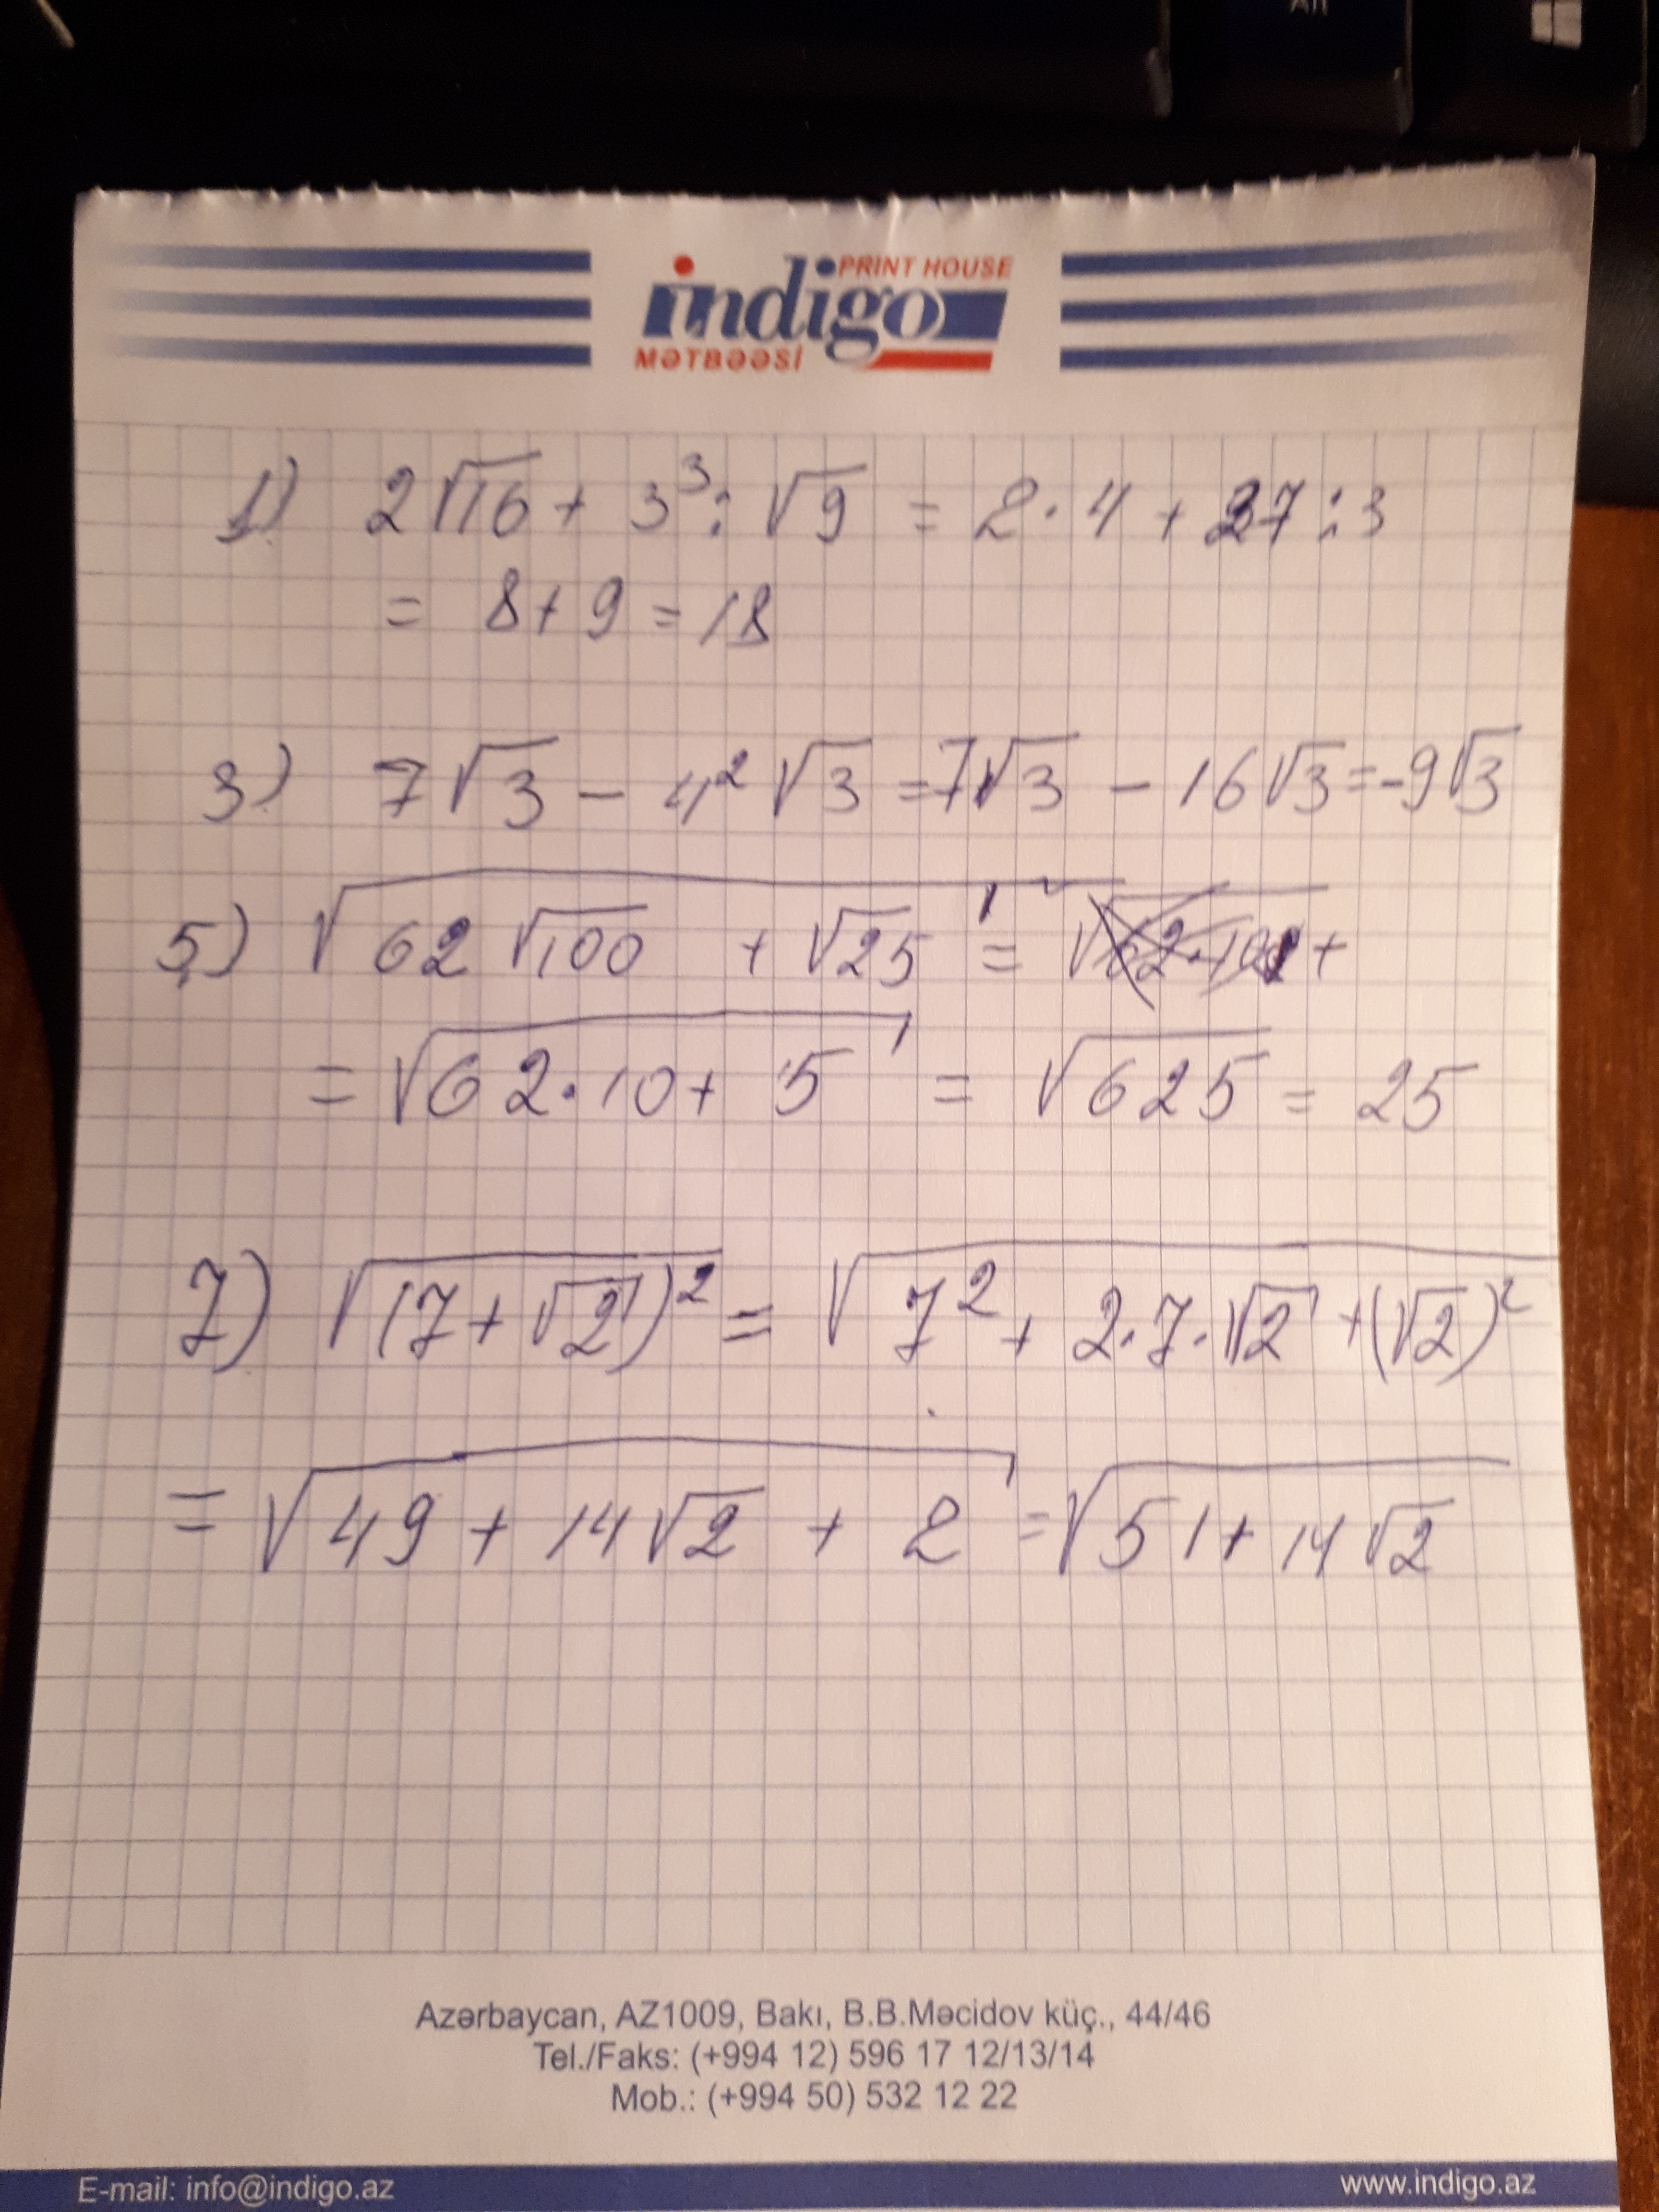 PRINT HOUSE
indigo
MƏTBƏƏSİ
1) 2√16 + 3³ : √9 = 2 · 4 + 27 : 3
= 8 + 9 = 18
3) 7√3 − 4² √3 = 7√3 − 16√3 = -9√3
5) √(62√100 + √25) = √(62·100 +
= √(62·10 + 5) = √625 = 25
7) √((7 + √2)²) = √(7² + 2·7·√2 + (√2)²)
= √(49 + 14√2 + 2) = √(51 + 14√2)
Azərbaycan, AZ1009, Bakı, B.B.Məcidov küç., 44/46
Tel./Faks: (+994 12) 596 17 12/13/14
Mob.: (+994 50) 532 12 22
E-mail: info@indigo.az www.indigo.az